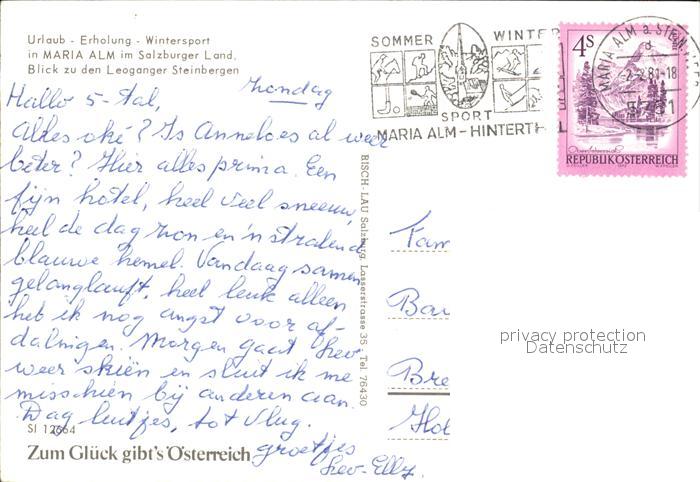 Urlaub - Erholung - Wintersport
in MARIA ALM im Salzburger Land,
Blick zu den Leoganger Steinbergen
zondag
Hallo 5-tal,
Alles oké? Is Anneloes al weer
beter? Hier alles prima. Een
fijn hotel, heel veel sneeuw,
heel de dag zon en 'n stralend
blauwe hemel. Vandaag samen
gelanglauft, heel leuk alleen
heb ik nog angst voor af-
dalingen. Morgen gaat Lev
weer skiën en sluit ik me
misschien bij anderen aan.
Dag luitjes, tot vlug.
groetjes
Lev-Elly.
SI 12664
Zum Glück gibt's Österreich
RISCH-LAU Salzburg, Lasserstrasse 35 - Tel. 76430
SOMMER WINTER
SPORT
MARIA ALM-HINTERTH
4S
REPUBLIK ÖSTERREICH
MARIA ALM a. STEIN.
-2.2.81-18
privacy protection
Datenschutz
Bre
Hol